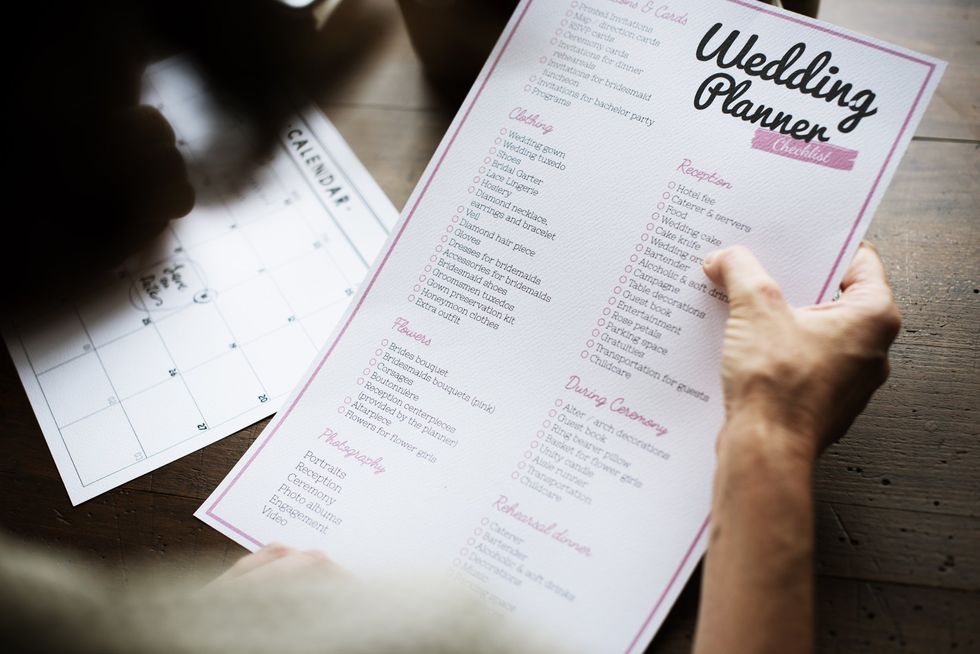 Wedding
Planner
Checklist
& Cards
Printed Invitations
Map / direction cards
RSVP cards
Ceremony cards
Invitations for dinner
rehearsals
Invitations for bridesmaid
luncheon
Invitations for bachelor party
Programs
Clothing
Wedding gown
Wedding tuxedo
Shoes
Bridal Garter
Lace Lingerie
Hosiery
Diamond necklace,
earrings and bracelet
Veil
Diamond hair piece
Gloves
Dresses for bridemaids
Accessories for bridemaids
Bridesmaid shoes
Groomsmen tuxedos
Gown preservation kit
Honeymoon clothes
Extra outfit
Flowers
Brides bouquet
Bridesmaids bouquets (pink)
Corsages
Boutonnière
Reception centerpieces
(provided by the planner)
Altarpiece
Flowers for flower girls
Photography
Portraits
Reception
Ceremony
Photo albums
Engagement
Video
Reception
Hotel fee
Caterer & servers
Food
Wedding cake
Cake knife
Wedding
Bartender
Alcoholic & soft
Campagne
Table decorations
Guest book
Entertainment
Rose petals
Parking space
Gratuities
Transportation for guests
Childcare
During Ceremony
Alter / arch decorations
Guest book
Ring bearer pillow
Basket for flower girls
Unity candle
Aisle runner
Transportation
Childcare
Rehearsal dinner
Caterer
Bartender
Alcoholic & soft drinks
Decorations
Music
space
CALENDAR
Save
the
Date